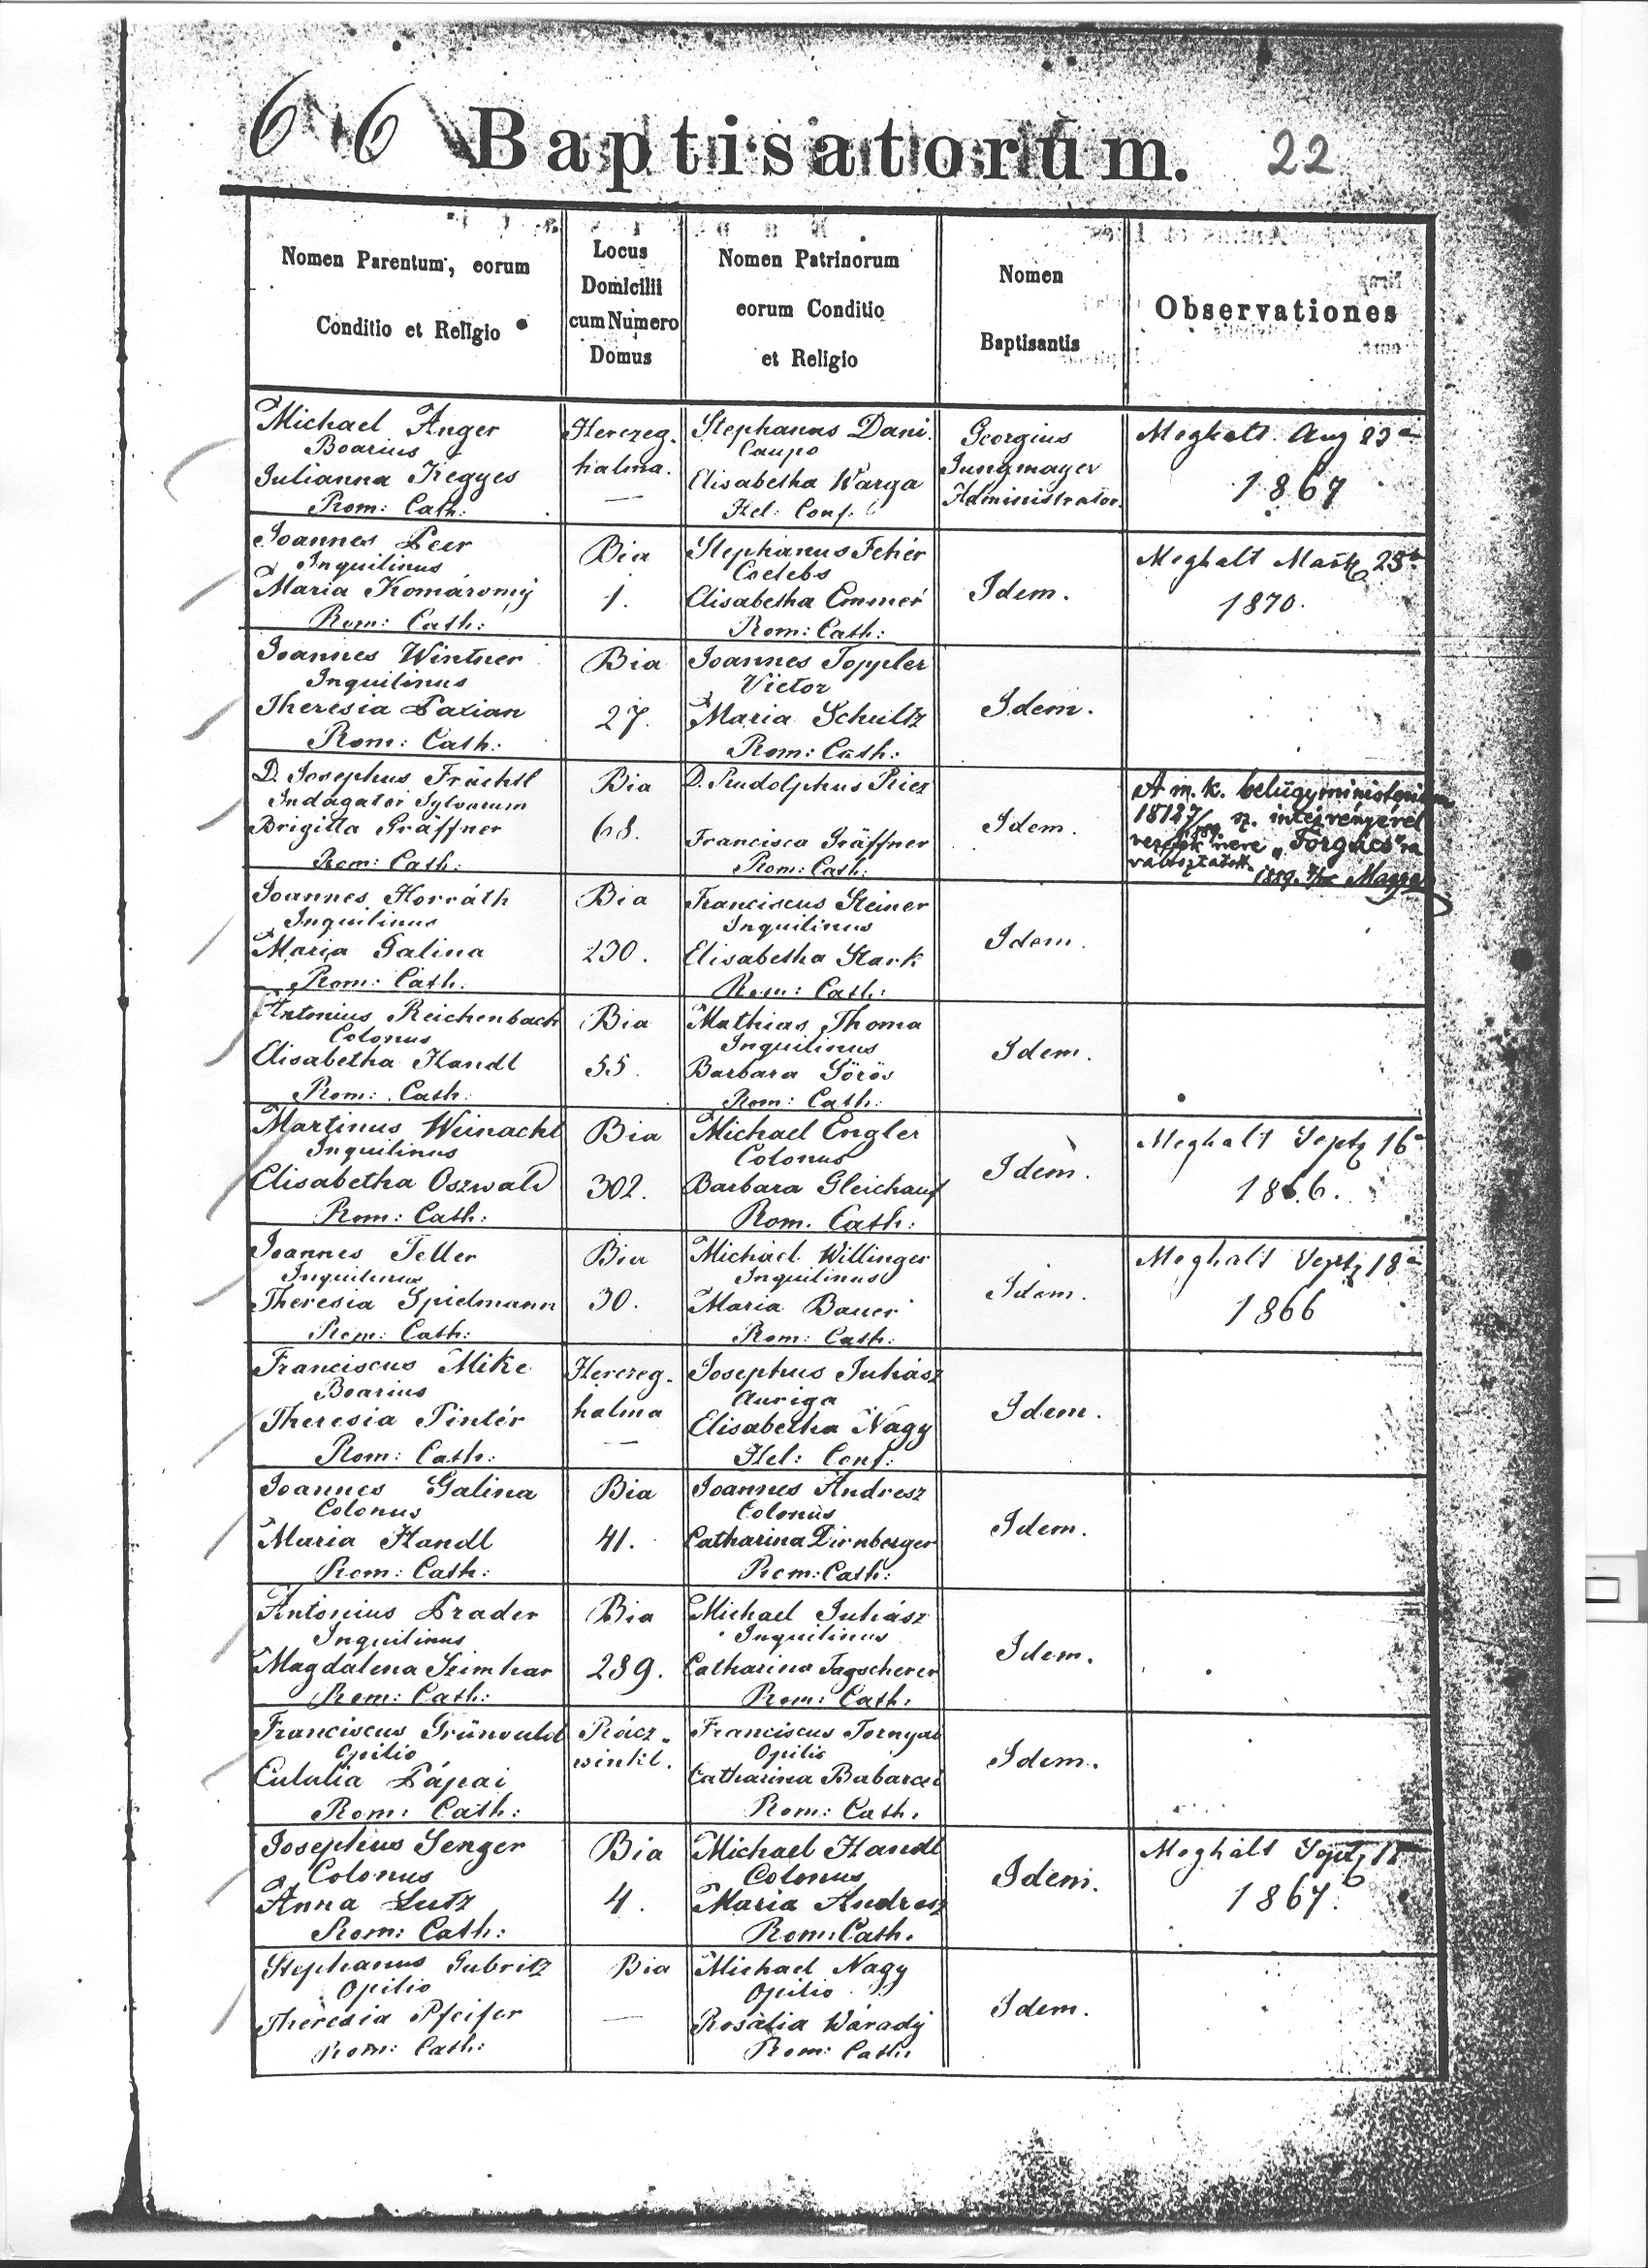 66 Baptisatorum. 22
Nomen Parentum, eorum
Conditio et Religio
Locus
Domicilii
cum Numero
Domus
Nomen Patrinorum
eorum Conditio
et Religio
Nomen
Baptisantis
Observationes
Michael Anger
Boarius
Julianna Kegyes
Rom: Cath:
Herczeg-
halma.
—
Stephanus Dani.
Caupo
Elisabetha Warga
Hel: Conf:
Georgius
Jungmayer
Administrator.
Meghalt Aug
1867
Joannes Peer
Inquilinus
Maria Komáromy
Rom: Cath:
Bia
1.
Stephanus Fehér
Coelebs
Elisabetha Emmer
Rom: Cath:
Idem.
Meghalt
1870.
Joannes Wintner
Inquilinus
Theresia Paxian
Rom: Cath:
Bia
27.
Joannes Toppler
Victor
Maria Schultz
Rom: Cath:
Idem.
D. Josephus Frächtl
Indagator Sylvarum
Brigitta Gräffner
Rom: Cath:
Bia
68.
D. Rudolphus Ries
Francisca Gräffner
Rom: Cath:
Idem.
A m. k. belügyministerium
18127/ sz.
"Forgács"ra
1889.
Joannes Horváth
Inquilinus
Maria Galina
Rom: Cath:
Bia
230.
Franciscus Steiner
Inquilinus
Elisabetha Stark
Rom: Cath:
Idem.
Antonius Reichenbach
Colonus
Elisabetha Handl
Rom: Cath:
Bia
55.
Mathias Thoma
Inquilinus
Barbara Sörös
Rom: Cath:
Idem.
Martinus Weinachl
Inquilinus
Elisabetha Oszwald
Rom: Cath:
Bia
302.
Michael Engler
Colonus
Barbara Gleichauf
Rom. Cath:
Idem.
Meghalt Sept 16
1866.
Joannes Teller
Inquilinus
Theresia Spielmann
Rom: Cath:
Bia
30.
Michael Willinger
Inquilinus
Maria Bauer
Rom: Cath:
Idem.
Meghalt Sept 18
1866
Franciscus Mike
Boarius
Theresia Pintér
Rom: Cath:
Herczeg-
halma
—
Josephus Juhász
Auriga
Elisabetha Nagy
Hel: Conf:
Idem.
Joannes Galina
Colonus
Maria Handl
Rom: Cath:
Bia
41.
Joannes Andresz
Colonus
Catharina Dirnberger
Rom: Cath:
Idem.
Antonius Prader
Inquilinus
Magdalena Szimhar
Rom: Cath:
Bia
289.
Michael Juhász
Inquilinus
Catharina Tagscherer
Rom: Cath:
Idem.
Franciscus Grünvald
Opilio
Eulalia Pápai
Rom: Cath:
Rácz-
winkl.
Franciscus Tornyai
Opilio
Catharina Babarczi
Rom: Cath.
Idem.
Josephus Senger
Colonus
Anna Lutz
Rom: Cath:
Bia
4.
Michael Handl
Colonus
Maria Andresz
Rom: Cath.
Idem.
Meghalt Sept
1867.
Stephanus Gubritz
Opilio
Theresia Pfeifer
Rom: Cath:
Bia
—
Michael Nagy
Opilio
Rosalia Várady
Rom: Cath:
Idem.